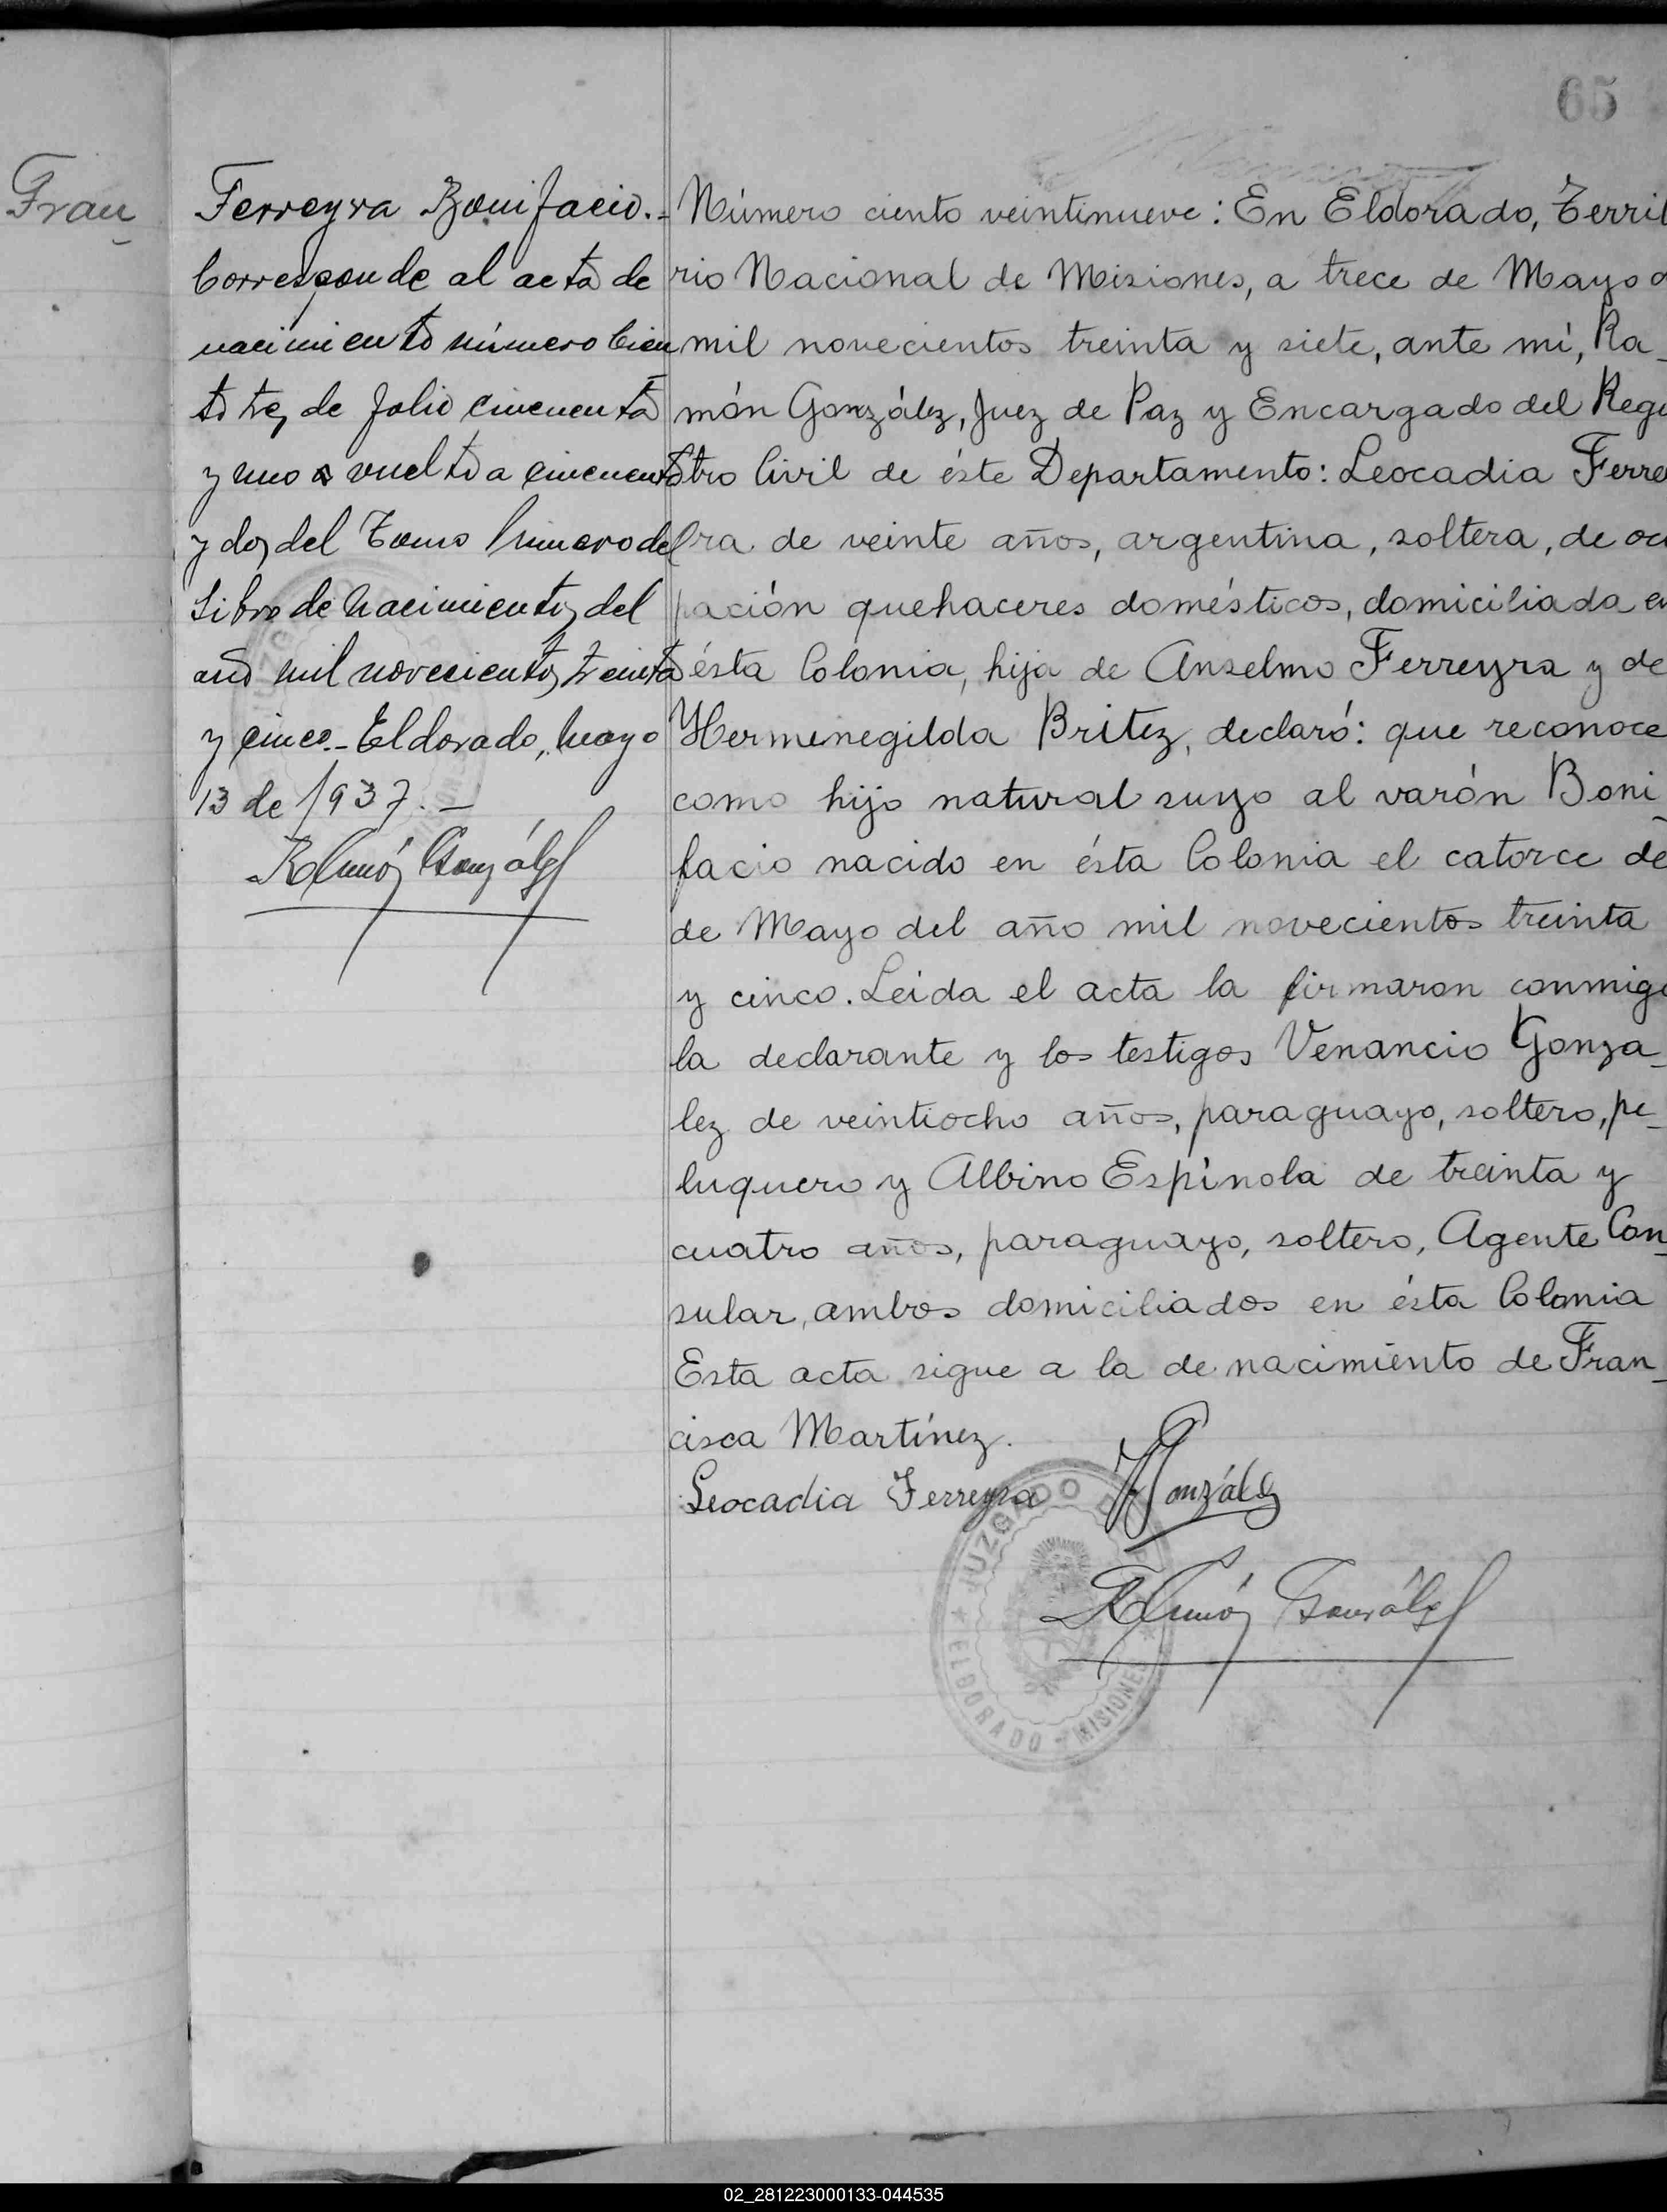 65
Fran
Ferreyra Bonifacio.-
Corresponde al acta de
nacimiento número Cien
to tres de folio cincuenta
y uno a vuelto a cincuenta
y dos del Tomo Primero del
Libro de Nacimientos del
año mil novecientos treinta
y cinco.- Eldorado, Mayo
13 de 1937.-
Ramón González
Número ciento veintinueve: En Eldorado, Territ
rio Nacional de Misiones, a trece de Mayo d
mil novecientos treinta y siete, ante mí, Ra_
món González, Juez de Paz y Encargado del Regi
stro Civil de éste Departamento: Leocadia Ferre
ra de veinte años, argentina, soltera, de ocu
pación quehaceres domésticos, domiciliada en
ésta Colonia, hija de Anselmo Ferreyra y de
Hermenegilda Britez, declaró: que reconoce
como hijo natural suyo al varón Boni_
facio nacido en ésta Colonia el catorce de
de Mayo del año mil novecientos treinta
y cinco. Leida el acta la firmaron conmigo
la declarante y los testigos Venancio Gonza_
lez de veintiocho años, paraguayo, soltero, pe_
luquero y Albino Espínola de treinta y
cuatro años, paraguayo, soltero, Agente Con_
sular, ambos domiciliados en ésta Colonia
Esta acta sigue a la de nacimiento de Fran_
cisca Martínez.
Leocadia Ferreyra VGonzález
Ramón González
JUZGADO DE
ELDORADO - MISIONES
02_281223000133-044535